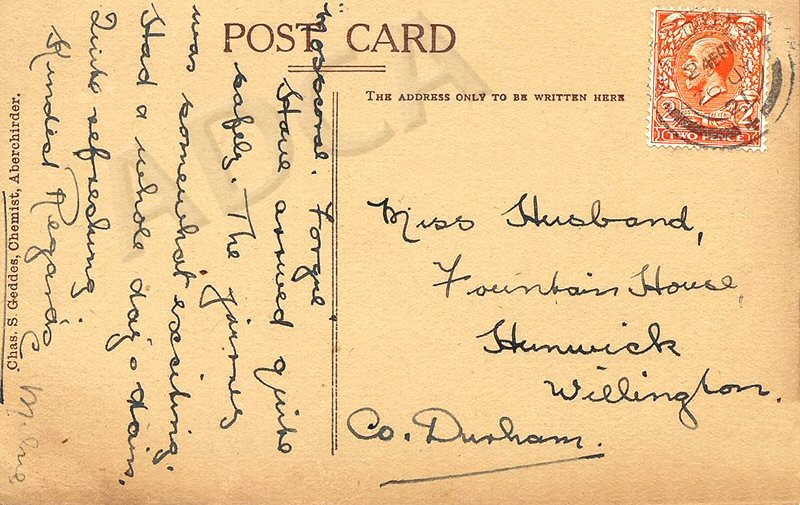 POST CARD
THE ADDRESS ONLY TO BE WRITTEN HERE
Forgue
Have arrived quite
safely. The journey
was somewhat exciting.
Had a whole day's rain.
Quite refreshing
Kindest Regards
C Milne
Miss Husband,
Fountain House,
Hunwick
Willington.
Co. Durham.
Chas. S. Geddes, Chemist, Aberchirder.
TWO PENCE
ADCA